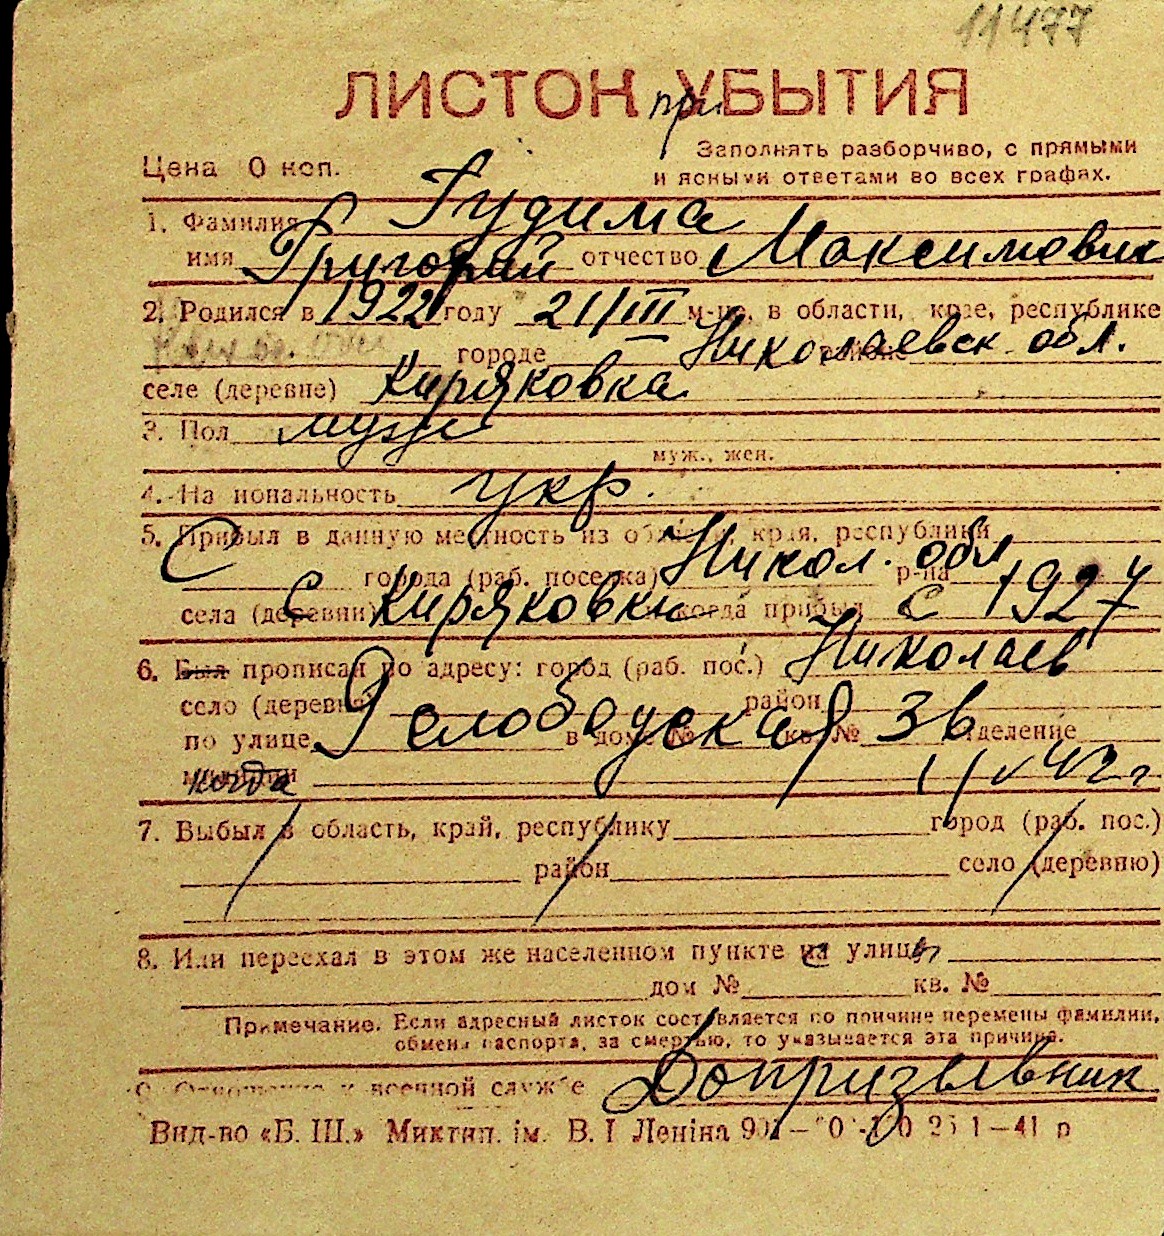 11477
ЛИСТОК при УБЫТИЯ
Цена 0 коп.
Заполнять разборчиво, с прямыми
и ясными ответами во всех графах.
1. Фамилия Гудима
имя Григорий отчество Максимович
2. Родился в 1922 году 21/III м-це, в области, крае, республике
городе Николаевск обл.
селе (деревне) Киряковка
3. Пол муж
муж., жен.
4. Национальность укр.
5. Прибыл в данную местность из области, края, республики
города (раб. поселка) Никол. обл р-на
села (деревни) с Киряковки когда прибыл с 1927
6. Был прописан по адресу: город (раб. пос.) Николаев
село (деревня) район
по улице 9 слободская в доме № кв. № 36 отделение
милиции когда 1/V 42 г
7. Выбыл в область, край, республику город (раб. пос.)
район село (деревню)
8. Или переехал в этом же населенном пункте на улицу
дом № кв. №
Примечание. Если адресный листок составляется по причине перемены фамилии,
обмена паспорта, за смертью, то указывается эта причина.
9. Отношение к военной службе Допризывник
Вид-во «Б. Ш.» Миктип. ім. В. І Леніна